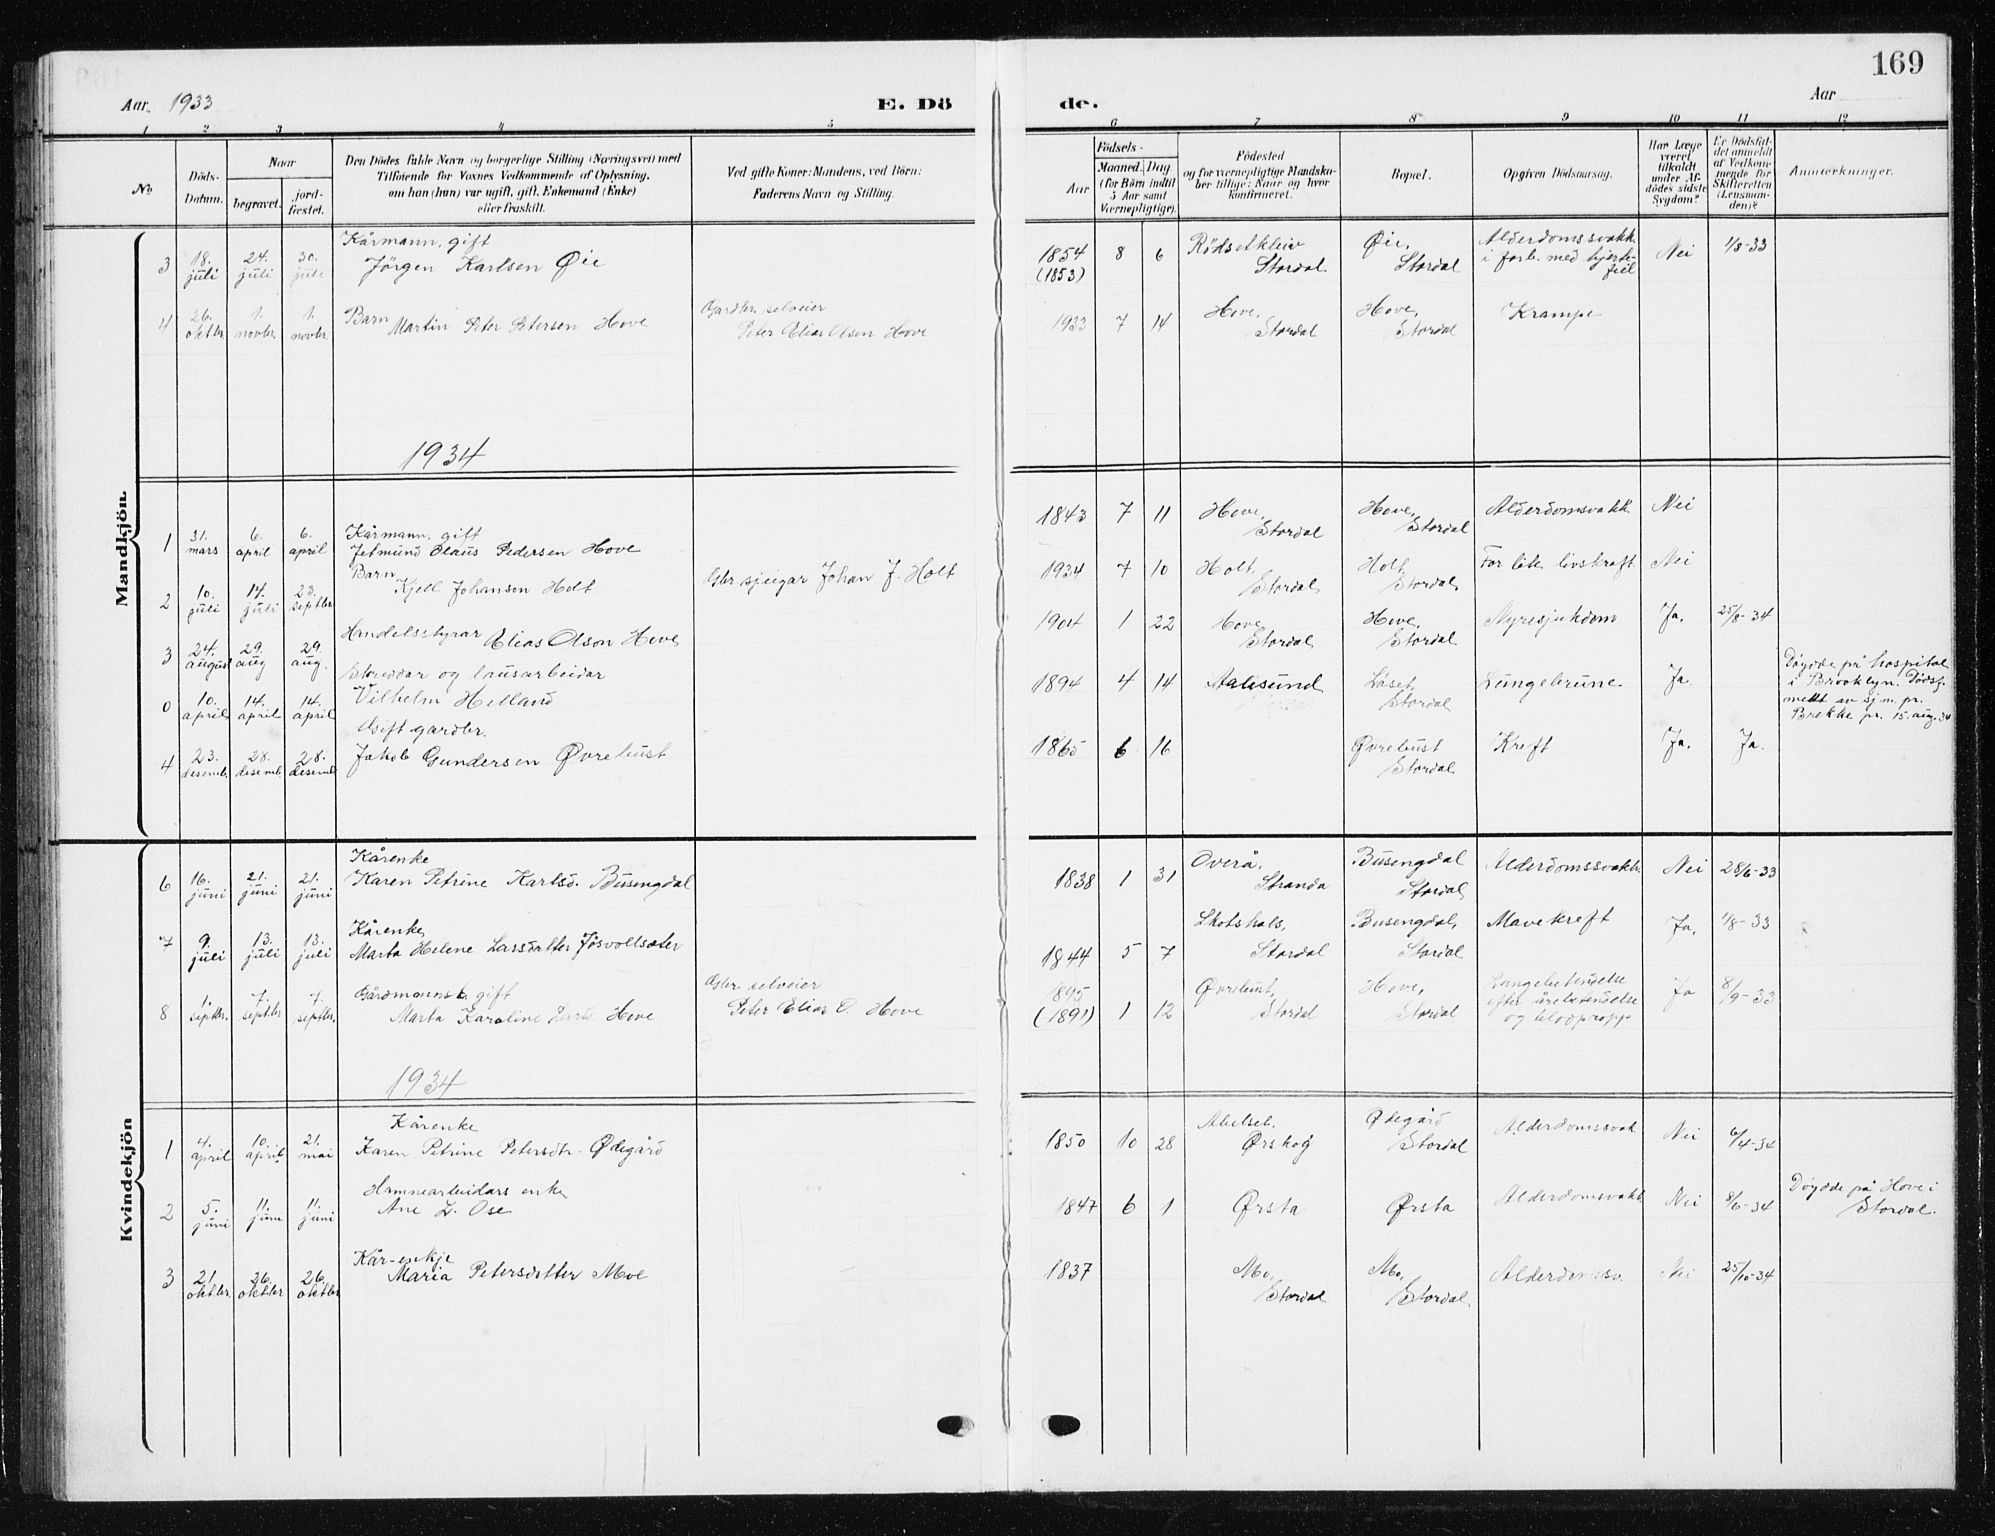 169
Aar. 1933
E. Dö
de.
Aar
1 2 3 4 5 6 7 8 9 10 11 12
No
Döds-
Datum.
Naar
begravet.
jord-
fæstet.
Den Dödes fulde Navn og borgerlige Stilling (Næringsvei) med
Tilföiende for Voxnes Vedkommende af Oplysning,
om han (hun) var ugift, gift, Enkemand (Enke)
eller fraskilt.
Ved gifte Koner: Mandens, ved Börn:
Faderens Navn og Stilling.
Födsels-
Aar
Maaned. Dag
(for Börn indtil
5 Aar samt
Værnepligtige).
Födested
og for værnepligtige Mandska-
ber tillige: Naar og hvor
konfirmeret.
Bopæl.
Opgiven Dödsaarsag.
Har Læge
været
tilkaldt
under Af-
dödes sidste
Sygdom?
Er Dödsfal-
det anmeldt
af Vedkom-
mende for
Skifteretten
(Lensman-
den)?
Anmerkninger.
Mandkjön.
3 18. juli 24. juli 30. juli Kårmann, gift
Jörgen Karlsen Øie
1854 (1853) 8 6 Rödsetkleiv Stordal Øie, Stordal Alderdomssvakh. i forb. med hjerte-feil Nei 1/8-33
4 26. oktbr. 1. novbr. 1. novbr. Barn
Martin Peter Petersen Hove
Gardbr. selveier
Peter Elias Olsen Hove
1933 7 14 Hove, Stordal Hove, Stordal Krampe
1934
1 31. mars 6. april 6. april Kårmann, gift
Jetmund Olaus Pedersen Hove
1843 7 11 Hove, Stordal Hove, Stordal Alderdomsvakh. Nei
2 10. juli 14. juli 23. septbr. Barn
Kjell Johansen Holt
Gbr sjeigar Johan J. Holt
1934 7 10 Holt, Stordal Holt, Stordal For lite livskraft Nei
3 24. august 29. aug 29. aug. Handelsstyrar Elias Olson Hove
1904 1 22 Hove, Stordal Hove, Stordal Nyresjukdom Ja. 25/8-34
0 10. april 14. april 14. april og lausarbeidar
Vilhelm Helland
1894 4 14 Aalesund Löset, Stordal Lungebrune Ja
Döydde på hospital
i Brooklyn. Dödsf.
meldt av sj.m. pr.
Brekke pr. 15. aug. 34
4 23. desemb. 28. desemb. 28. desemb. Gift gardbr.
Jakob Gundersen Øvrebust
1865 6 16 Øvrebust Stordal Kreft Ja. Ja.
Kvindekjön
6 16. juni 21. juni 21. juni Kårenke
Karen Petrine Karlsd. Busengdal
1838 1 31 Overå, Stranda Busengdal Stordal Alderdomssvakh. Nei 28/6-33
7 9. juli 13. juli 13. juli Kårenke
Marta Helene Larsdatter Jösvollsæter
1844 5 7 Skotshals, Stordal Busengdal, Stordal Mavekreft Ja, 1/8-33
8 1. septbr. 7. septbr. 7. septbr. Gårdmannsk. gift
Marta Karoline Larsd. Hove
Gbr. selveier
Peter Elias O. Hove
1895 (1891) 1 12 Øvrebust, Stordal Hove, Stordal Lungebetendelse efter årebetendelse og blodpropp Ja 8/9-33
1934
1 4. april 10. april 21. mai Kårenke
Karen Petrine Petersdtr. Ødegård
1850 10 28 Abelset, Ørskog Ødegård Stordal Alderdomssvak. Nei 6/4-34
2 5. juni 11. juni 11. juni Hamnearbeidars enke
Ane L. Ose
1847 6 1 Ørsta Ørsta Alderdomsvakh. Nei 8/6-34
Döydde på Hove i
Stordal.
3 21. oktbr. 26. oktbr 26. oktbr Kår-enkje
Maria Petersdatter Moe
1837 Mo, Stordal Mo, Stordal. Alderdomsv. Nei 25/10-34